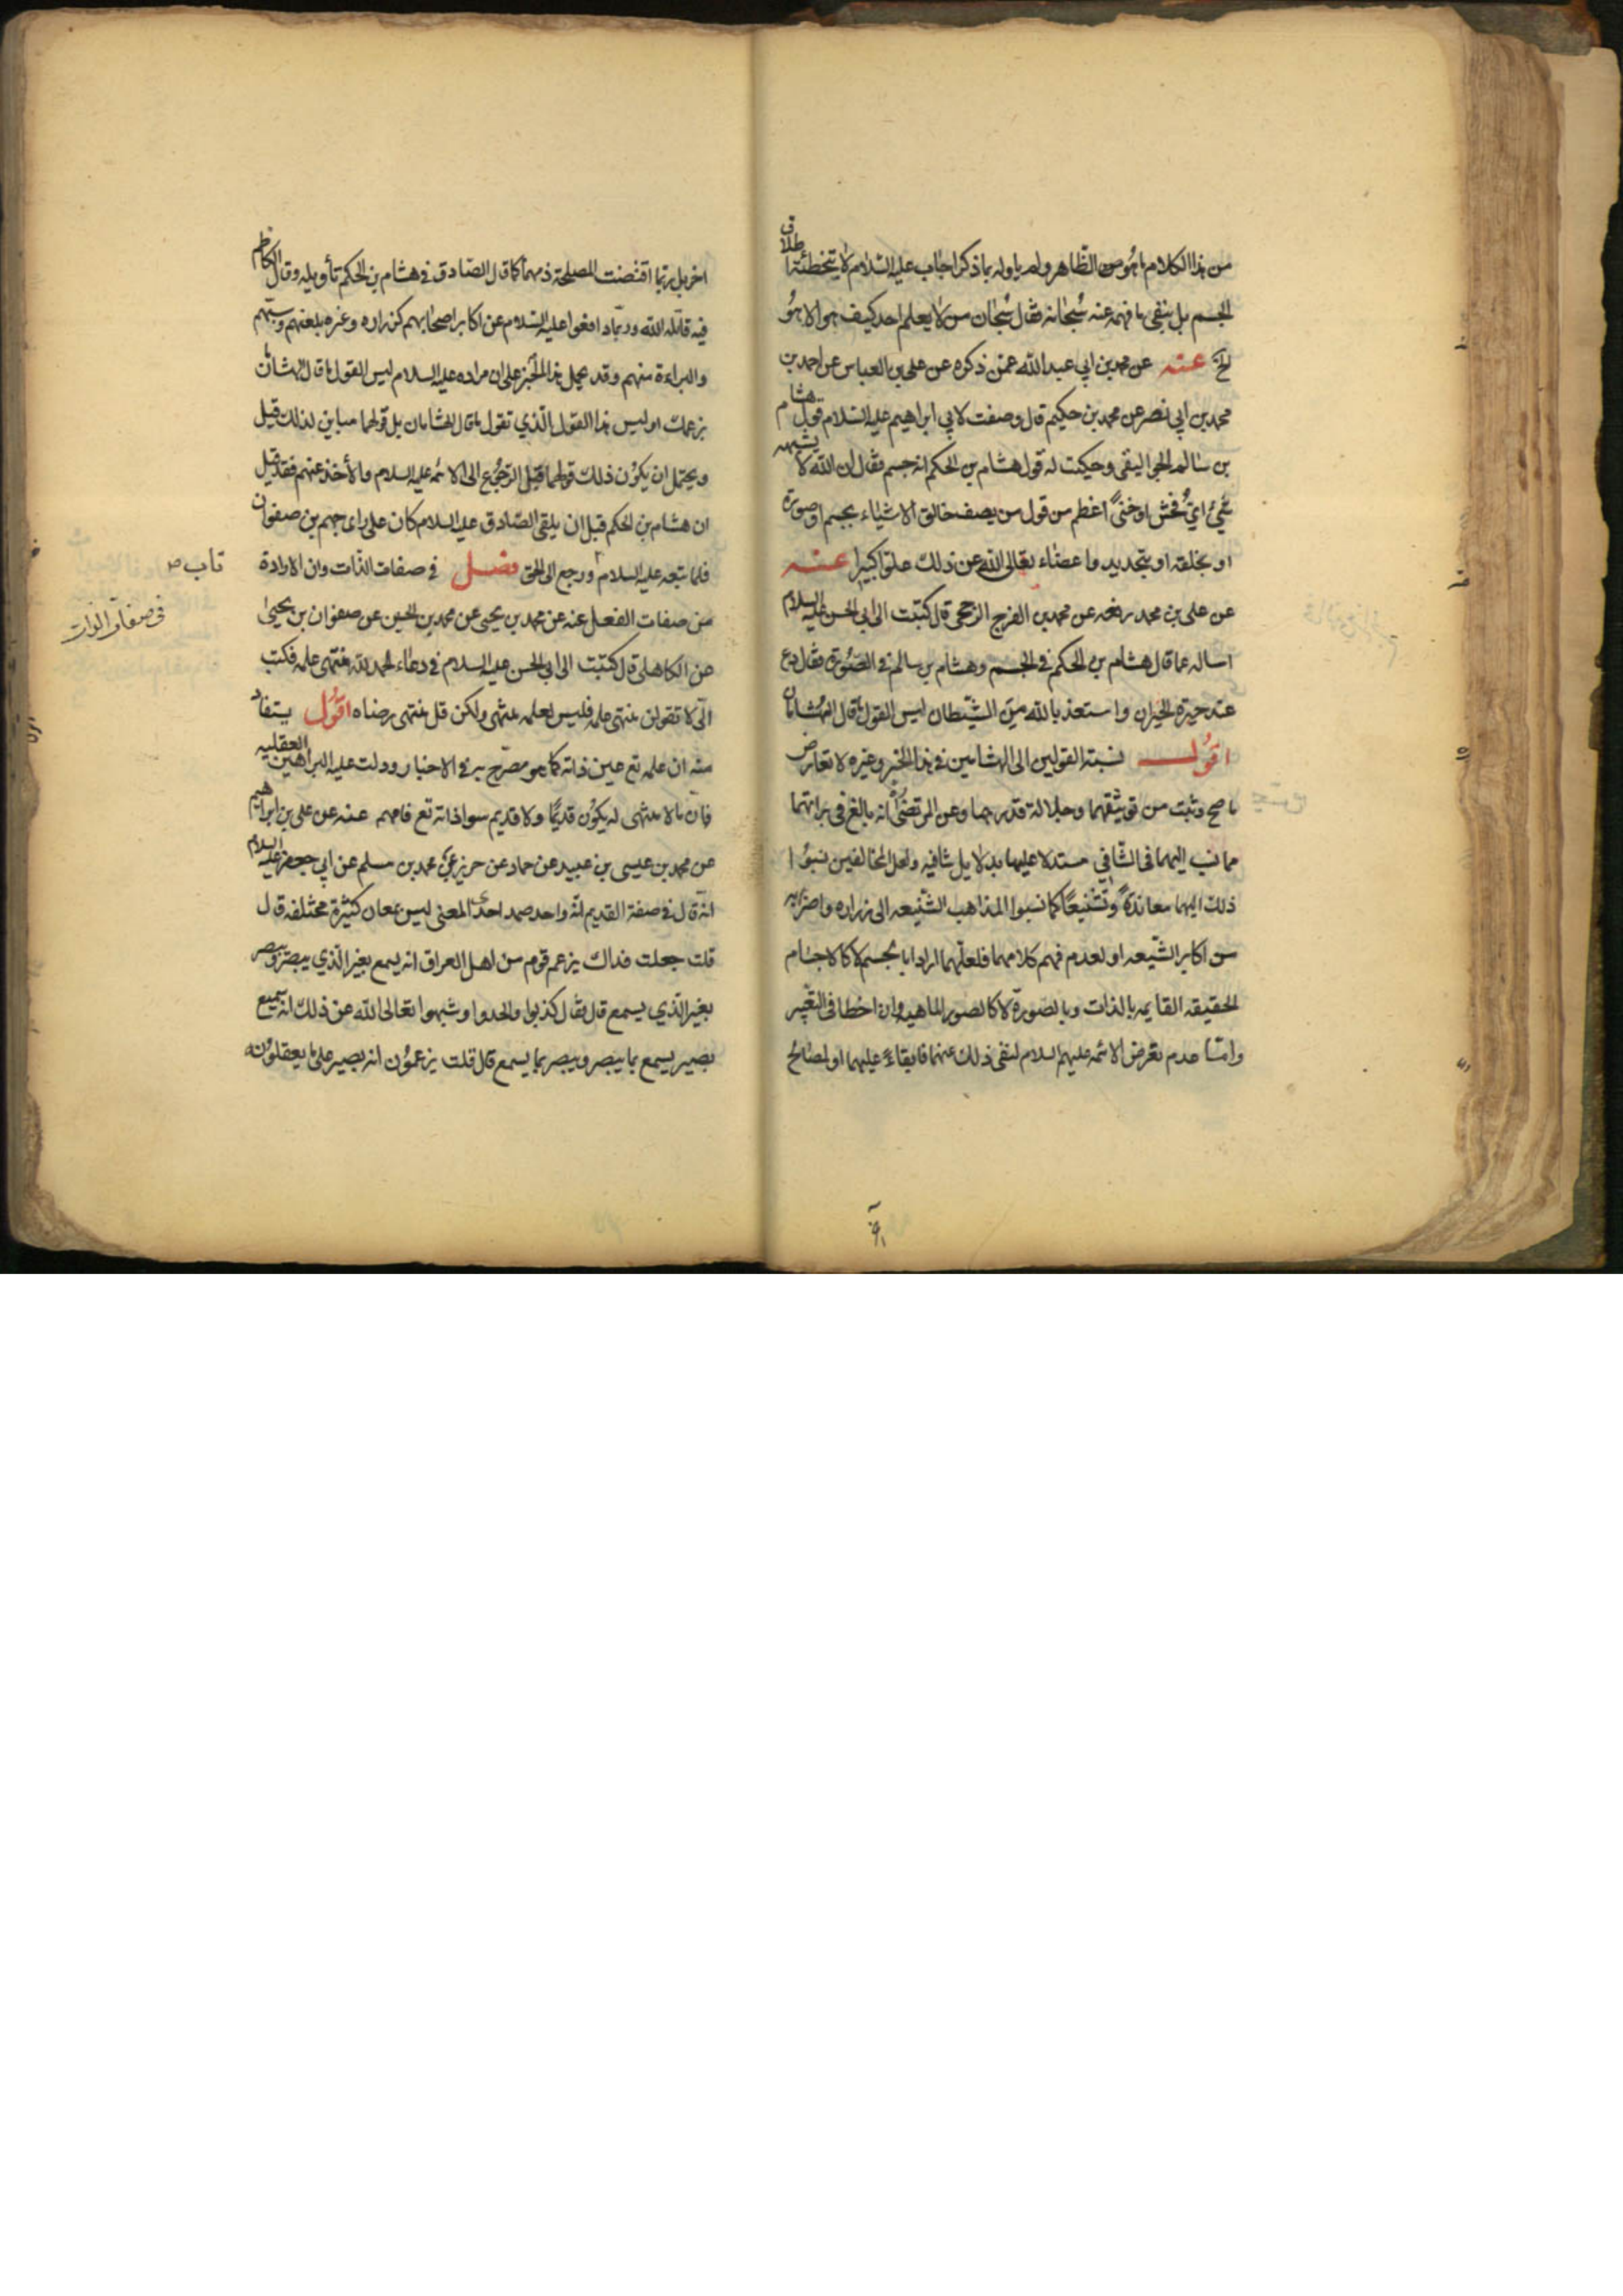 من هذا الكلام ما هو من الظاهر ولم ياوله بما ذكر اجاب عليه السلام لا بتخطئة اطلاق
الجسم بل بنفى ما فهمه عنه سبحانه فقال سبحان من لا يعلم احد كيف هو الا هو
الخ عنه عن محمد بن ابي عبد الله عمن ذكره عن علي بن العباس عن احمد بن
محمد بن ابي نصر عن محمد بن حكيم قال وصفت لابي ابراهيم عليه السلام قول هشام
بن سالم الجواليقى وحكيت له قول هشام بن الحكم انه جسم فقال ان الله لا يشبهه
شيء اي فحش او خنى اعظم من قول من يصف خالق الاشياء بجسم او صورة
او بخلقه او بتحديد واعضاء تعالى الله عن ذلك علوا كبيرا عنه
عن علي بن محمد رفعه عن محمد بن الفرج الرخجى قال كتبت الى ابي الحسن عليه السلام
اساله عما قال هشام بن الحكم في الجسم وهشام بن سالم في الصورة فقال دع
عنك حيرة الحيران واستعذ بالله من الشيطان ليس القول ما قال الهشامان
اقول نسبة القولين الى الهشامين في هذا الخبر وغيره لا تعارض
ما صح وثبت من توثيقهما وجلالة قدرهما وعن المرتضى انه بالغ في برائتهما
مما نسب اليهما في الشافي مستدلا عليها بدلايل شافيه ولعل المخالفين نسبوا
ذلك اليهما معاندة وتشنيعا كما نسبوا المذاهب الشنيعه الى زراره واضرابه
من اكابر الشيعه او لعدم فهم كلامهما فلعلهما ارادا بالجسم لا كالاجسام
الحقيقه القايمه بالذات وبالصورة لا كالصور الماهيه وان اخطا في التعبير
وامتا عدم تعرض الائمه عليهم السلام لنفى ذلك عنهما فابقاء عليهما او لمصالح
اخر بل ربما اقتضت المصلحة ذمهما كما قال الصادق في هشام بن الحكم تأويله وقال الكاظم
فيه قاتله الله وربما دافعوا عليه السلام عن اكابر اصحابهم كزراره وغيره بلعنهم وسبهم
والبراءة منهم وقد يحمل هذا الخبر على ان مراده عليه السلام ليس القول ما قال الهشامان
بزعمك او ليس هذا القول الذي تقول ما قال الهشامان بل قولهما مباين لذلك قيل
ويحتمل ان يكون ذلك قولهما قبل الرجوع الى الائمه عليه السلام والأخذ عنهم فقد قيل
ان هشام بن الحكم قبل ان يلقى الصادق عليه السلام كان على راى جهم بن صفوان
فلما تبعه عليه السلام ورجع الى الحق فصل في صفات الذات وان الارادة
من صفات الفعل عنه عن محمد بن يحيى عن محمد بن الحسين عن صفوان بن يحيى
عن الكاهلى قال كتبت الى ابي الحسن عليه السلام في دعاء الحمد لله منتهى علمه فكتب
الى لا تقولن منتهى علمه فليس لعلمه منتهى ولكن قل منتهى رضاه اقول يستفاد
منه ان علمه تع عين ذاته كما هو مصرح به في الاخبار ودلت عليه البراهين العقليه
فان ما لا منتهى له يكون قديما ولا قديم سوا ذاته تع فافهم عنه عن علي بن ابراهيم
عن محمد بن عيسى بن عبيد عن حماد عن حريز عن محمد بن مسلم عن ابي جعفر عليه السلام
انه قال في صفة القديم انه واحد صمد احدى المعنى ليس بمعان كثيرة مختلفه قال
قلت جعلت فداك يزعم قوم من اهل العراق انه يسمع بغير الذي يبصر ويبصر
بغير الذي يسمع قال فقال كذبوا والحدوا وشبهوا تعالى الله عن ذلك انه سميع
بصير يسمع بما يبصر ويبصر بما يسمع قال قلت يزعمون انه بصير على ما يعقلونه
في صفات الذات